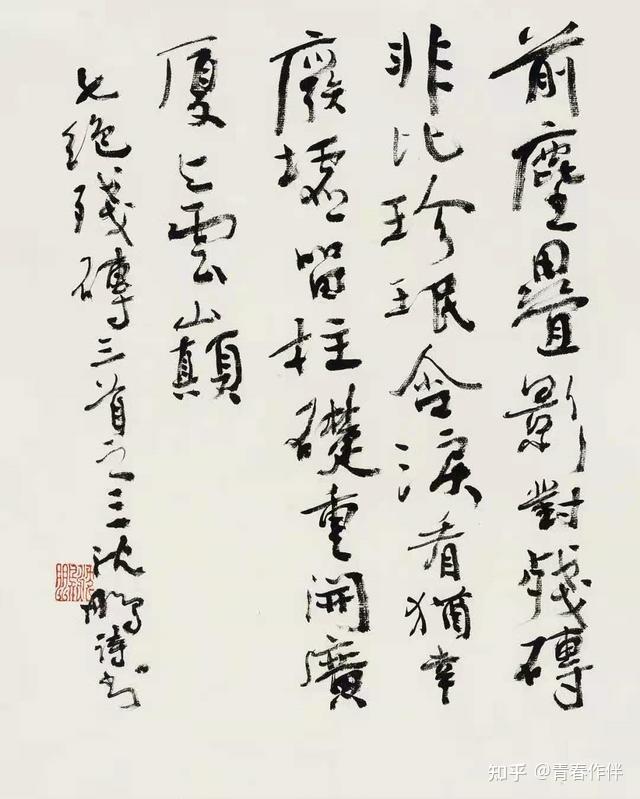 前塵疊影對殘磚
非比珍珉含淚看猶幸
廢墟留柱礎重開廣
廈上雲巔
七絕殘磚三首之三沈鵬詩書
知乎 @青春作伴